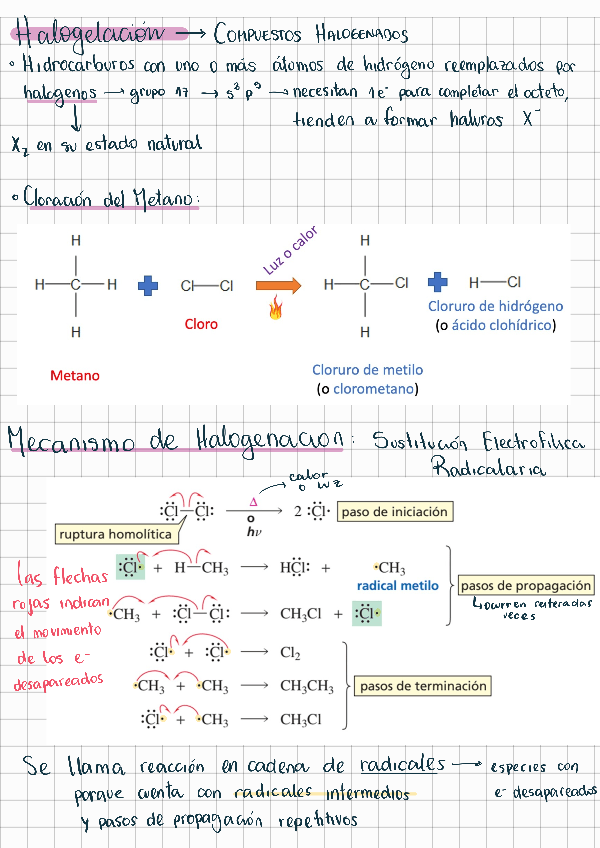 Halogelación → COMPUESTOS HALOGENADOS
• Hidrocarburos con uno o más átomos de hidrógeno reemplazados por
halogenos → grupo 17 → s² p⁵ → necesitan 1e⁻ para completar el octeto,
tienden a formar haluros X⁻
X₂ en su estado natural
• Cloración del Metano:
Luz o calor
H H
H—C—H + Cl—Cl → H—C—Cl + H—Cl
H H
Cloro
Cloruro de hidrógeno
(o ácido clohídrico)
Metano
Cloruro de metilo
(o clorometano)
Mecanismo de Halogenacion: Sustitución Electrofílica
Radicalaria
calor
o luz
:Cl—Cl: Δ o hν → 2 :Cl· paso de iniciación
ruptura homolítica
:Cl· + H—CH₃ → HCl: + ·CH₃
radical metilo
pasos de propagación
↳ ocurren reiteradas
veces
·CH₃ + :Cl—Cl: → CH₃Cl + :Cl·
las flechas
rojas indican
el movimiento
de los e⁻
desapareados
:Cl· + :Cl· → Cl₂
·CH₃ + ·CH₃ → CH₃CH₃ pasos de terminación
:Cl· + ·CH₃ → CH₃Cl
Se llama reacción en cadena de radicales → especies con
e⁻ desapareados
porque cuenta con radicales intermedios
y pasos de propagación repetitivos